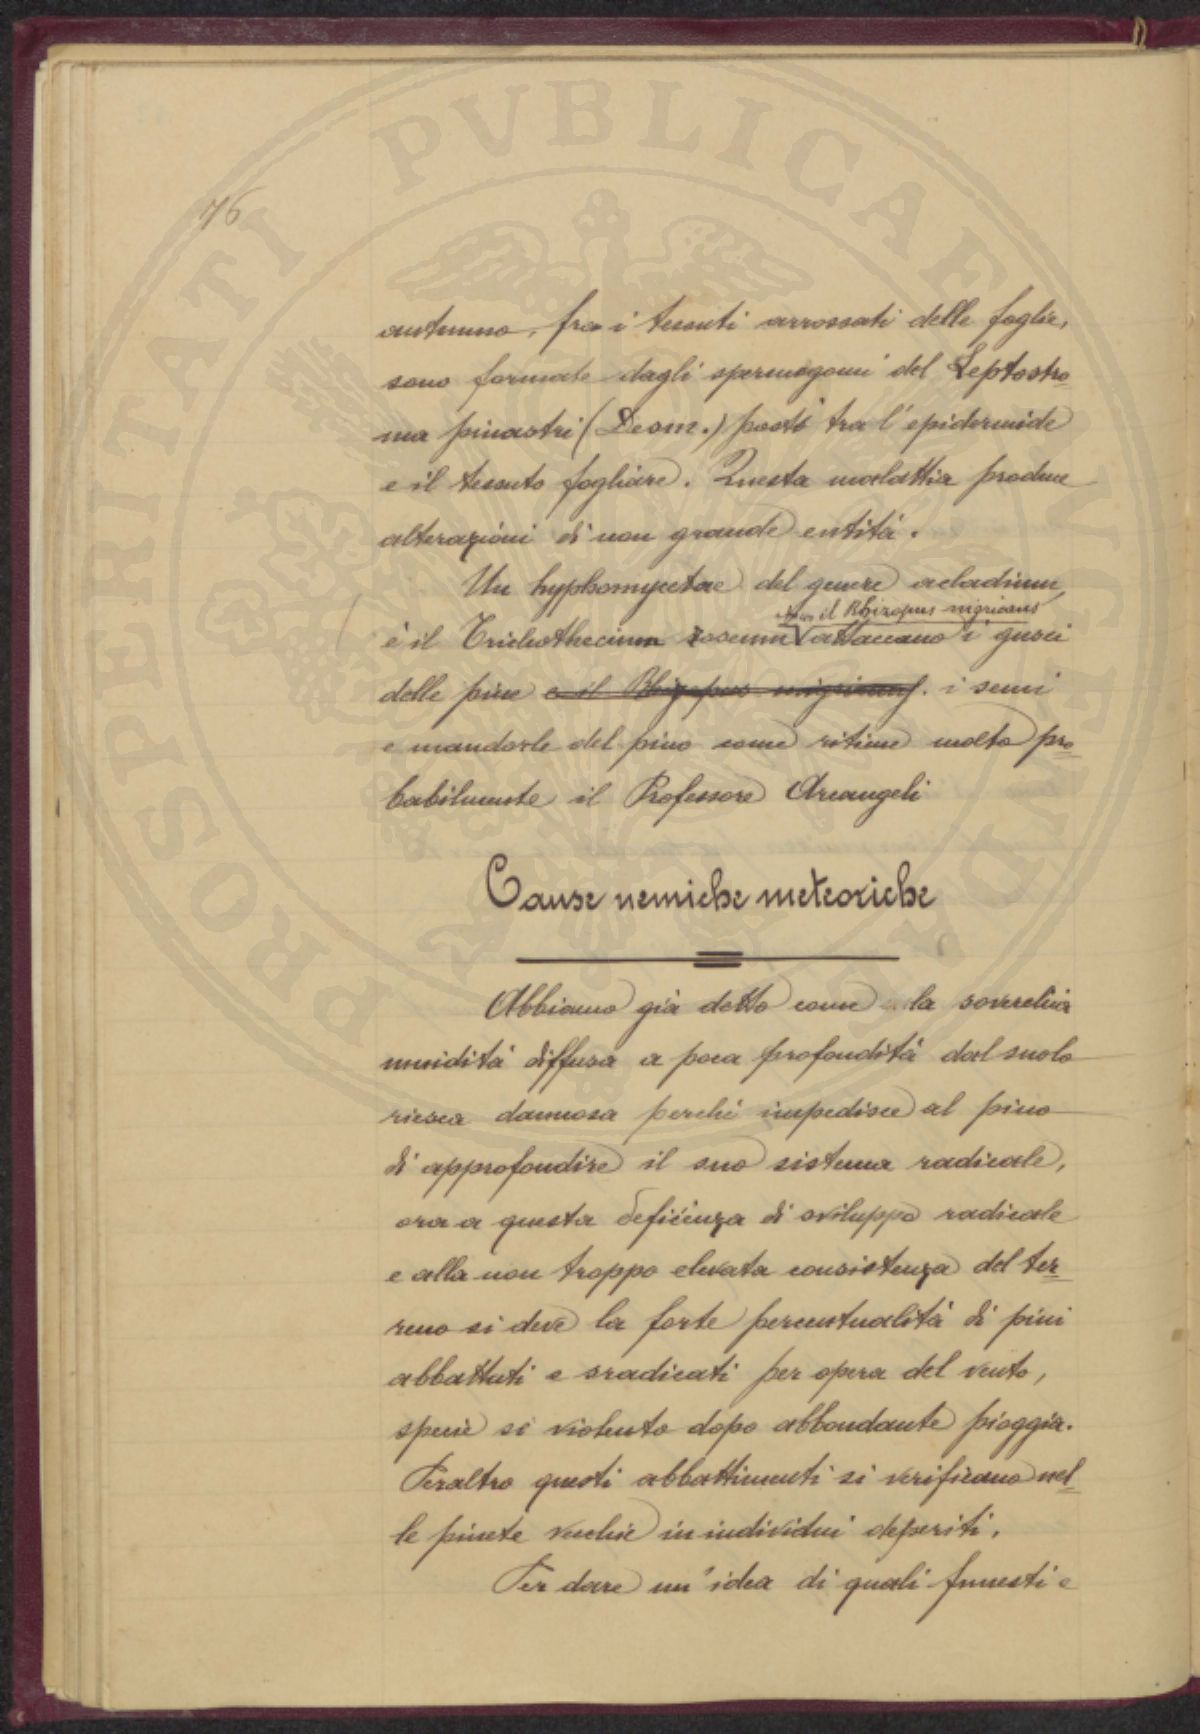 PROSPERITATI PVBLICAE AVGENDAE
76
autunno, fra i tessuti arrossati delle foglie,
sono formate dagli spermogoni del Leptostro
ma pinastri (Desm.) posti tra l'epidermide
e il tessuto fogliare. Questa malattia produce
alterazioni di non grande entità.
Un hyphomycetae del genere acladium,
il Rhizopus nigricans
è il Trichothecium roseum attaccano i gusci
delle pine e il Rhizopus nigricans. i semi
e mandorle del pino come ritiene molto pro
babilmente il Professore Arcangeli
Cause nemiche meteoriche
Abbiamo già detto come la soverchia
umidità diffusa a poca profondità dal suolo
riesca dannosa perchè impedisce al pino
di approfondire il suo sistema radicale,
ora a questa deficienza di sviluppo radicale
e alla non troppo elevata consistenza del ter
reno si deve la forte percentualità di pini
abbattuti e sradicati per opera del vento,
specie se violento dopo abbondante pioggia.
Peraltro questi abbattimenti si verificano nel
le pinete vecchie in individui deperiti.
Per dare un'idea di quali funesti e